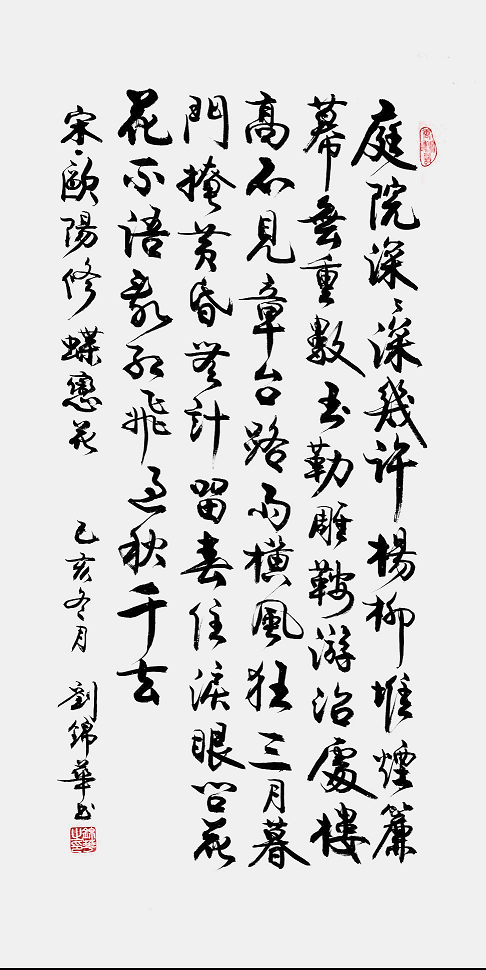 庭院深〻深幾許楊柳堆煙簾
幕無重數玉勒雕鞍游冶處樓
高不見章台路雨橫風狂三月暮
門掩黃昏無計留春住淚眼問花
花不語亂紅飛過秋千去
宋、歐陽修 蝶戀花 己亥冬月 劉錦華書